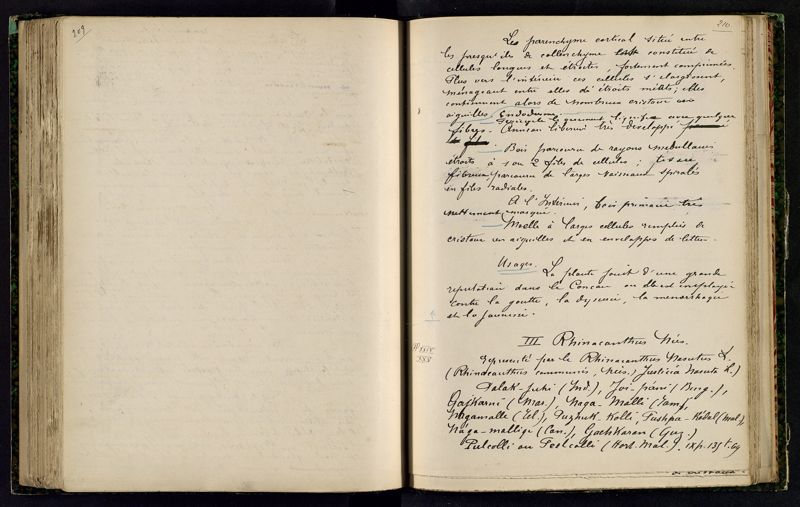 209
210
Le parenchyme cortical situé entre
les presqu'iles de collenchyme est constitué de
cellules longues et étroites, fortement comprimées.
Plus vers l'intérieur ces cellules s'elargissent,
ménageant entre elles d'étroits méats; elles
contiennent alors de nombreux cristaux en
aiguilles. Endoderme.
Péricycle lignifié avec quelques
fibres. Anneau libérien très développé
Bois parcouru de rayons medullaires
étroits à 1 ou 2 files de cellules; tissu
fibreux parcouru de larges vaisseaux spiralés
en files radiales.
A l'Intérieur, bois primaire très
nettement marqué.
Moelle à larges cellules remplies de
cristaux en aiguilles et en enveloppes de lettre.
Usages. La plante jouit d'une grande
reputation dans le Concan où elle est employée
contre la goutte, la dysurie, la menorrhagie
et la jaunisse.
III Rhinacanthus Nées.
représenté par le Rhinacanthus Nasutus L.
(Rhinacanthus communis, Nées.) Justicia Nasuta L.)
Palak-juhi (Ind.), Joi-pani (Beng.),
Gajkarni (Mar.), Naga-Malli (Tam),
Nagamalle (Tel.), Puzhuk-Kolli, Pushpa-Kedal (Mal),
Naga-mallige (Can.), Gachkaran (Guz.)
Pulcolli ou Peelcolli (Hort. Mal.) ix p. 135 t. 69